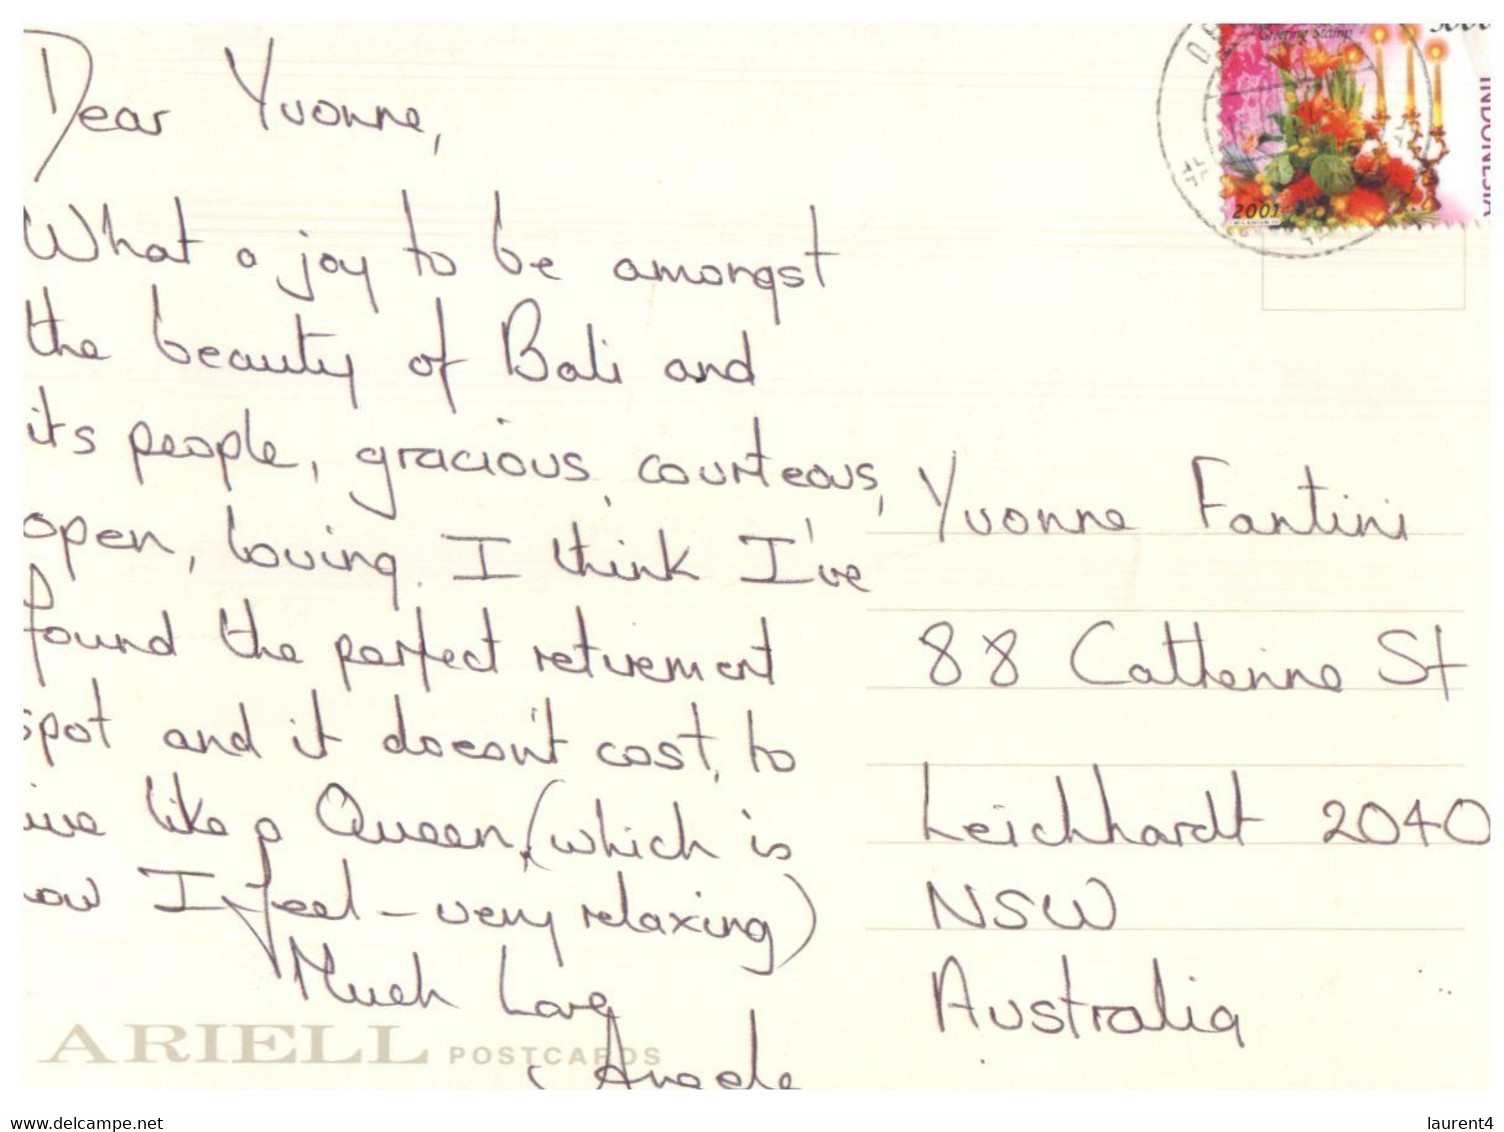 Dear Yvonne,
What a joy to be amongst
the beauty of Bali and
its people, gracious, courteous,
open, loving. I think I've
found the perfect retirement
spot and it doesn't cost, to
live like a Queen, (which is
how I feel - very relaxing)
Much Love
Angela
ARIELL POSTCARDS
Greeting Stamp
INDONESIA
2001
Yvonne Fantini
88 Catherine St
Leichhardt 2040
NSW
Australia
www.delcampe.net
laurent4